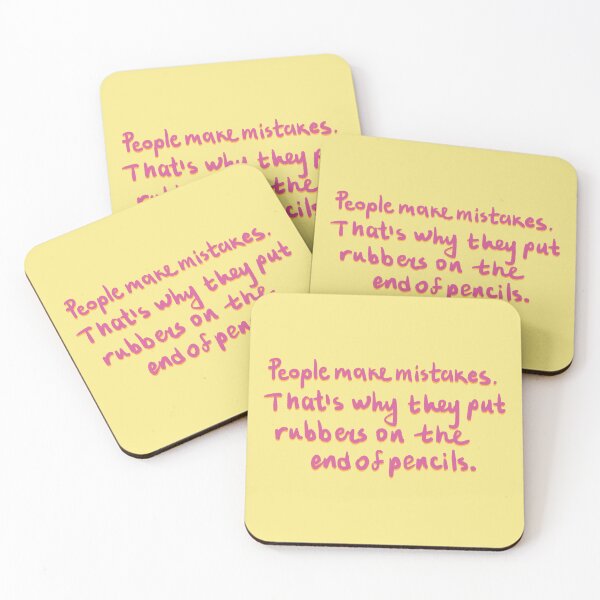 People make mistakes.
That's why they
the
People make mistakes.
That's why they put
rubbers on the
end of pencils.
People make mistakes.
That's why they put
rubbers on the
end of
People make mistakes.
That's why they put
rubbers on the
end of pencils.